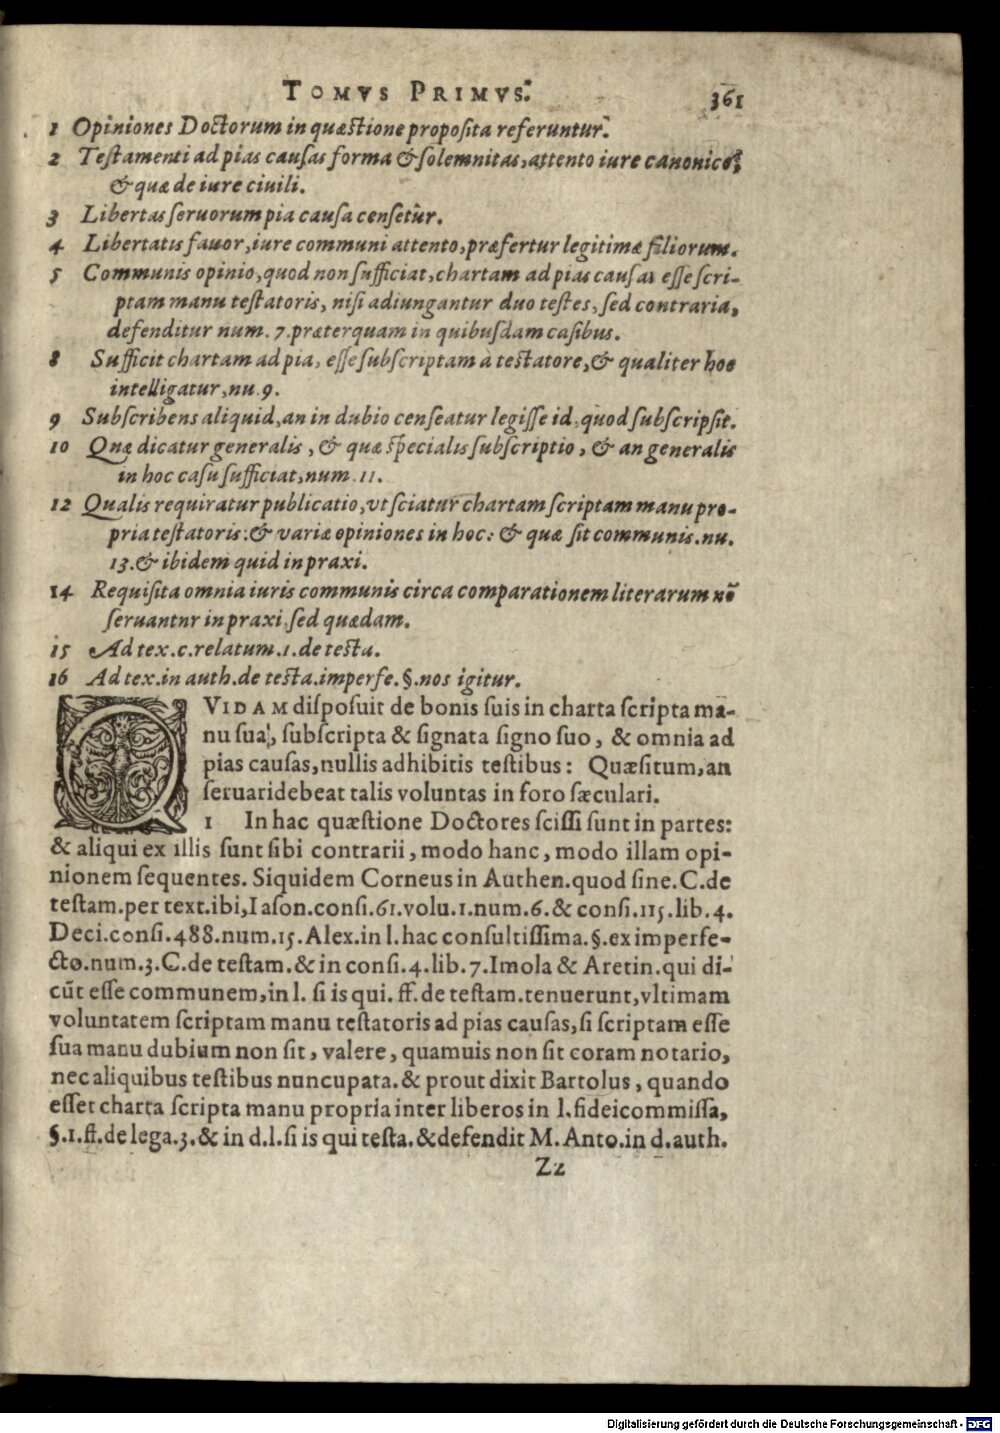 TOMVS PRIMVS. 361
1 Opiniones Doctorum in quæstione proposita referuntur.
2 Testamenti ad pias causas forma & solemnitas, attento iure canonico,
& quæ de iure ciuili.
3 Libertas seruorum pia causa censetur.
4 Libertatis fauor, iure communi attento, præfertur legitimæ filiorum.
5 Communis opinio, quod non sufficiat, chartam ad pias causas esse scri-
ptam manu testatoris, nisi adiungantur duo testes, sed contraria,
defenditur num. 7. præterquam in quibusdam casibus.
8 Sufficit chartam ad pia, esse subscriptam à testatore, & qualiter hoc
intelligatur, nu. 9.
9 Subscribens aliquid, an in dubio censeatur legisse id, quod subscripsit.
10 Quæ dicatur generalis, & quæ specialis subscriptio, & an generalis
in hoc casu sufficiat, num. 11.
12 Qualis requiratur publicatio, vt sciatur chartam scriptam manu pro-
pria testatoris: & variæ opiniones in hoc: & quæ sit communis. nu.
13. & ibidem quid in praxi.
14 Requisita omnia iuris communis circa comparationem literarum nō
seruantnr in praxi, sed quædam.
15 Ad tex. c. relatum. 1. de testa.
16 Ad tex. in auth. de testa. imperfe. §. nos igitur.
QVIDAM disposuit de bonis suis in charta scripta ma-
nu sua, subscripta & signata signo suo, & omnia ad
pias causas, nullis adhibitis testibus: Quæsitum, an
seruari debeat talis voluntas in foro sæculari.
1 In hac quæstione Doctores scissi sunt in partes:
& aliqui ex illis sunt sibi contrarii, modo hanc, modo illam opi-
nionem sequentes. Siquidem Corneus in Authen. quod sine. C. de
testam. per text. ibi, Iason. consi. 61. volu. 1. num. 6. & consi. 115. lib. 4.
Deci. consi. 488. num. 15. Alex. in l. hac consultissima. §. ex imperfe-
cto. num. 3. C. de testam. & in consi. 4. lib. 7. Imola & Aretin. qui di-
cūt esse communem, in l. si is qui. ff. de testam. tenuerunt, vltimam
voluntatem scriptam manu testatoris ad pias causas, si scriptam esse
sua manu dubium non sit, valere, quamuis non sit coram notario,
nec aliquibus testibus nuncupata. & prout dixit Bartolus, quando
esset charta scripta manu propria inter liberos in l. fideicommissa,
§. 1. ff. de lega. 3. & in d. l. si is qui testa. & defendit M. Anto. in d. auth.
Zz
Digitalisierung gefördert durch die Deutsche Forschungsgemeinschaft - DFG